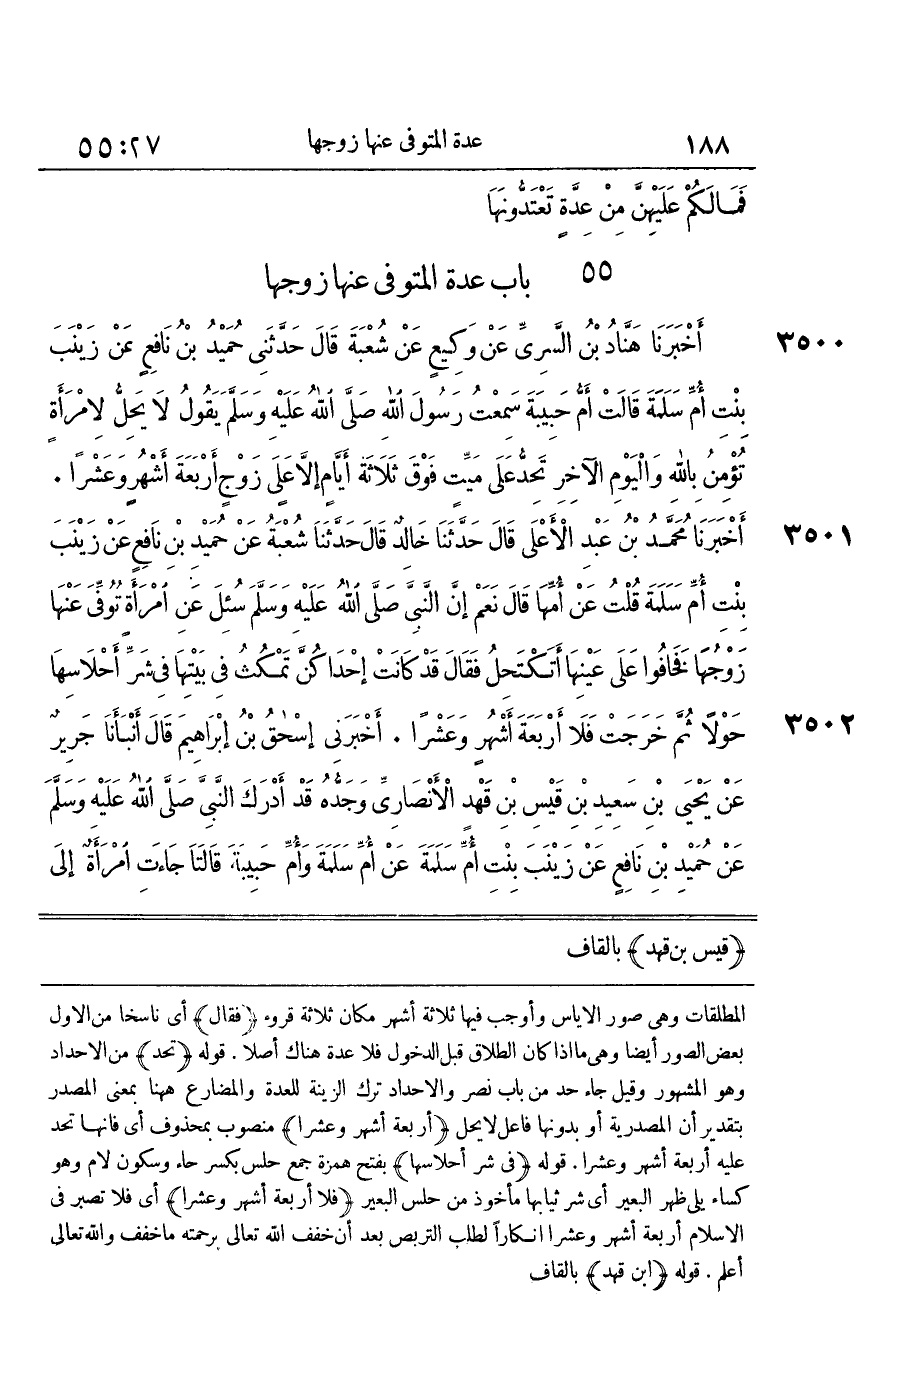 ١٨٨ عدة المتوفى عنها زوجها ٥٥:٢٧
فَمَالَكُمْ عَلَيْهِنَّ مِنْ عِدَّةٍ تَعْتَدُّونَهَا
٥٥ باب عدة المتوفى عنها زوجها
٣٥٠٠ أَخْبَرَنَا هَنَّادُ بْنُ السَّرِىِّ عَنْ وَكِيعٍ عَنْ شُعْبَةَ قَالَ حَدَّثَنِى حُمَيْدُ بْنُ نَافِعٍ عَنْ زَيْنَبَ
بِنْتِ أُمِّ سَلَمَةَ قَالَتْ أُمُّ حَبِيبَةَ سَمِعْتُ رَسُولَ اللهِ صَلَّى اللهُ عَلَيْهِ وَسَلَّمَ يَقُولُ لَا يَحِلُّ لِامْرَأَةٍ
تُؤْمِنُ بِاللهِ وَالْيَوْمِ الْآخِرِ تَحِدُّ عَلَى مَيِّتٍ فَوْقَ ثَلَاثَةِ أَيَّامٍ إِلَّا عَلَى زَوْجٍ أَرْبَعَةَ أَشْهُرٍ وَعَشْرًا .
٣٥٠١ أَخْبَرَنَا مُحَمَّدُ بْنُ عَبْدِ الْأَعْلَى قَالَ حَدَّثَنَا خَالِدٌ قَالَ حَدَّثَنَا شُعْبَةُ عَنْ حُمَيْدِ بْنِ نَافِعٍ عَنْ زَيْنَبَ
بِنْتِ أُمِّ سَلَمَةَ قُلْتُ عَنْ أُمِّهَا قَالَ نَعَمْ إِنَّ النَّبِىَّ صَلَّى اللهُ عَلَيْهِ وَسَلَّمَ سُئِلَ عَنِ امْرَأَةٍ تُوُفِّىَ عَنْهَا
زَوْجُهَا فَخَافُوا عَلَى عَيْنِهَا أَتَكْتَحِلُ فَقَالَ قَدْ كَانَتْ إِحْدَاكُنَّ تَمْكُثُ فِى بَيْتِهَا فِى شَرِّ أَحْلَاسِهَا
٣٥٠٢ حَوْلًا ثُمَّ خَرَجَتْ فَلَا أَرْبَعَةَ أَشْهُرٍ وَعَشْرًا . أَخْبَرَنِى إِسْحٰقُ بْنُ إِبْرَاهِيمَ قَالَ أَنْبَأَنَا جَرِيرٌ
عَنْ يَحْيَى بْنِ سَعِيدِ بْنِ قَيْسِ بْنِ قَهْدٍ الْأَنْصَارِىِّ وَجَدُّهُ قَدْ أَدْرَكَ النَّبِىَّ صَلَّى اللهُ عَلَيْهِ وَسَلَّمَ
عَنْ حُمَيْدِ بْنِ نَافِعٍ عَنْ زَيْنَبَ بِنْتِ أُمِّ سَلَمَةَ عَنْ أُمِّ سَلَمَةَ وَأُمِّ حَبِيبَةَ قَالَتَا جَاءَتِ امْرَأَةٌ إِلَى
﴿قيس بن قهد﴾ بالقاف
المطلقات وهى صور الاياس وأوجب فيها ثلاثة أشهر مكان ثلاثة قروء ﴿فقال﴾ أى ناسخا من الاول
بعض الصور أيضا وهى ما اذا كان الطلاق قبل الدخول فلا عدة هناك أصلا . قوله ﴿تحد﴾ من الاحداد
وهو المشهور وقيل جاء حد من باب نصر والاحداد ترك الزينة للعدة والمضارع ههنا بمعنى المصدر
بتقدير أن المصدرية أو بدونها فاعل لايحل ﴿أربعة أشهر وعشرا﴾ منصوب بمحذوف أى فانها تحد
عليه أربعة أشهر وعشرا . قوله ﴿فى شر أحلاسها﴾ بفتح همزة جمع حلس بكسر حاء وسكون لام وهو
كساء يلى ظهر البعير أى شر ثيابها مأخوذ من حلس البعير ﴿فلا أربعة أشهر وعشرا﴾ أى فلا تصبر فى
الاسلام أربعة أشهر وعشرا انكاراً لطلب التربص بعد أن خفف الله تعالى برحمته ماخفف والله تعالى
أعلم . قوله ﴿ابن قهد﴾ بالقاف